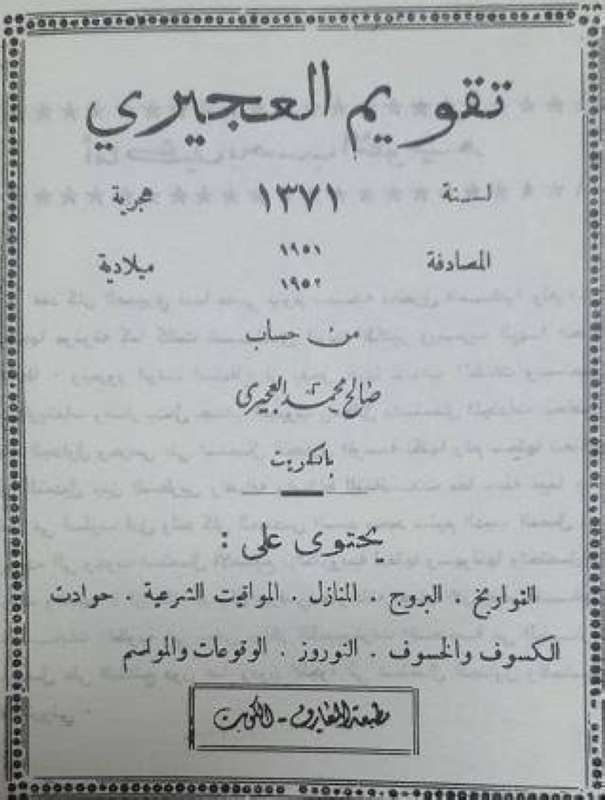 تقويم العجيري
لسنة ١٣٧١ هجرية
المصادفة ١٩٥١ ميلادية
١٩٥٢
من حساب
صالح محمد العجيري
بالكويت
يحتوى على :
التواريخ . البروج . المنازل . المواقيت الشرعية . حوادث
الكسوف والخسوف . النوروز . الوقوعات والمواسم
مطبعة المعارف - الكويت